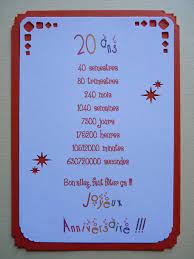 20 ans
40 semestres
80 trimestres
240 mois
1040 semaines
7300 jours
175200 heures
10512000 minutes
630720000 secondes
Bon alley, faut fêter ça !!!
Joyeux
Anniversaire !!!